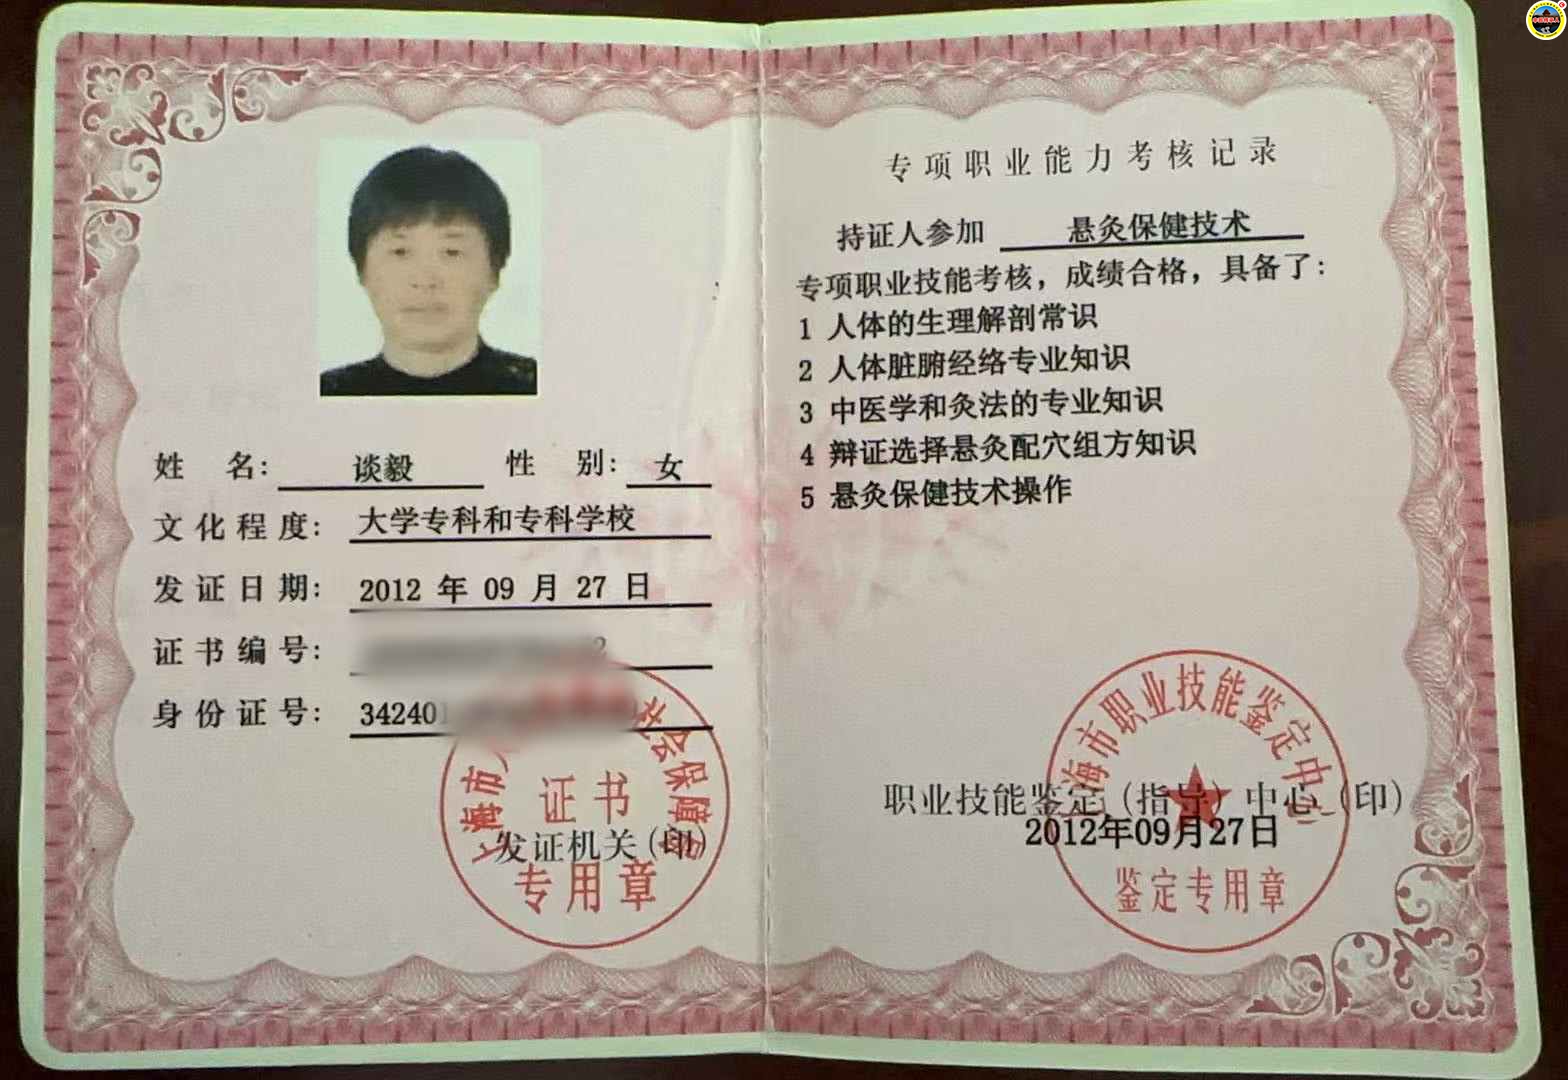 姓 名: 谈毅 性 别: 女
文化程度: 大学专科和专科学校
发证日期: 2012 年 09 月 27 日
证书编号: 2
身份证号: 34240
证书
发证机关(印)
专用章
专项职业能力考核记录
持证人参加 悬灸保健技术
专项职业技能考核，成绩合格，具备了:
1 人体的生理解剖常识
2 人体脏腑经络专业知识
3 中医学和灸法的专业知识
4 辩证选择悬灸配穴组方知识
5 悬灸保健技术操作
海市职业技能鉴定中心
职业技能鉴定(指导)中心(印)
2012年09月27日
鉴定专用章